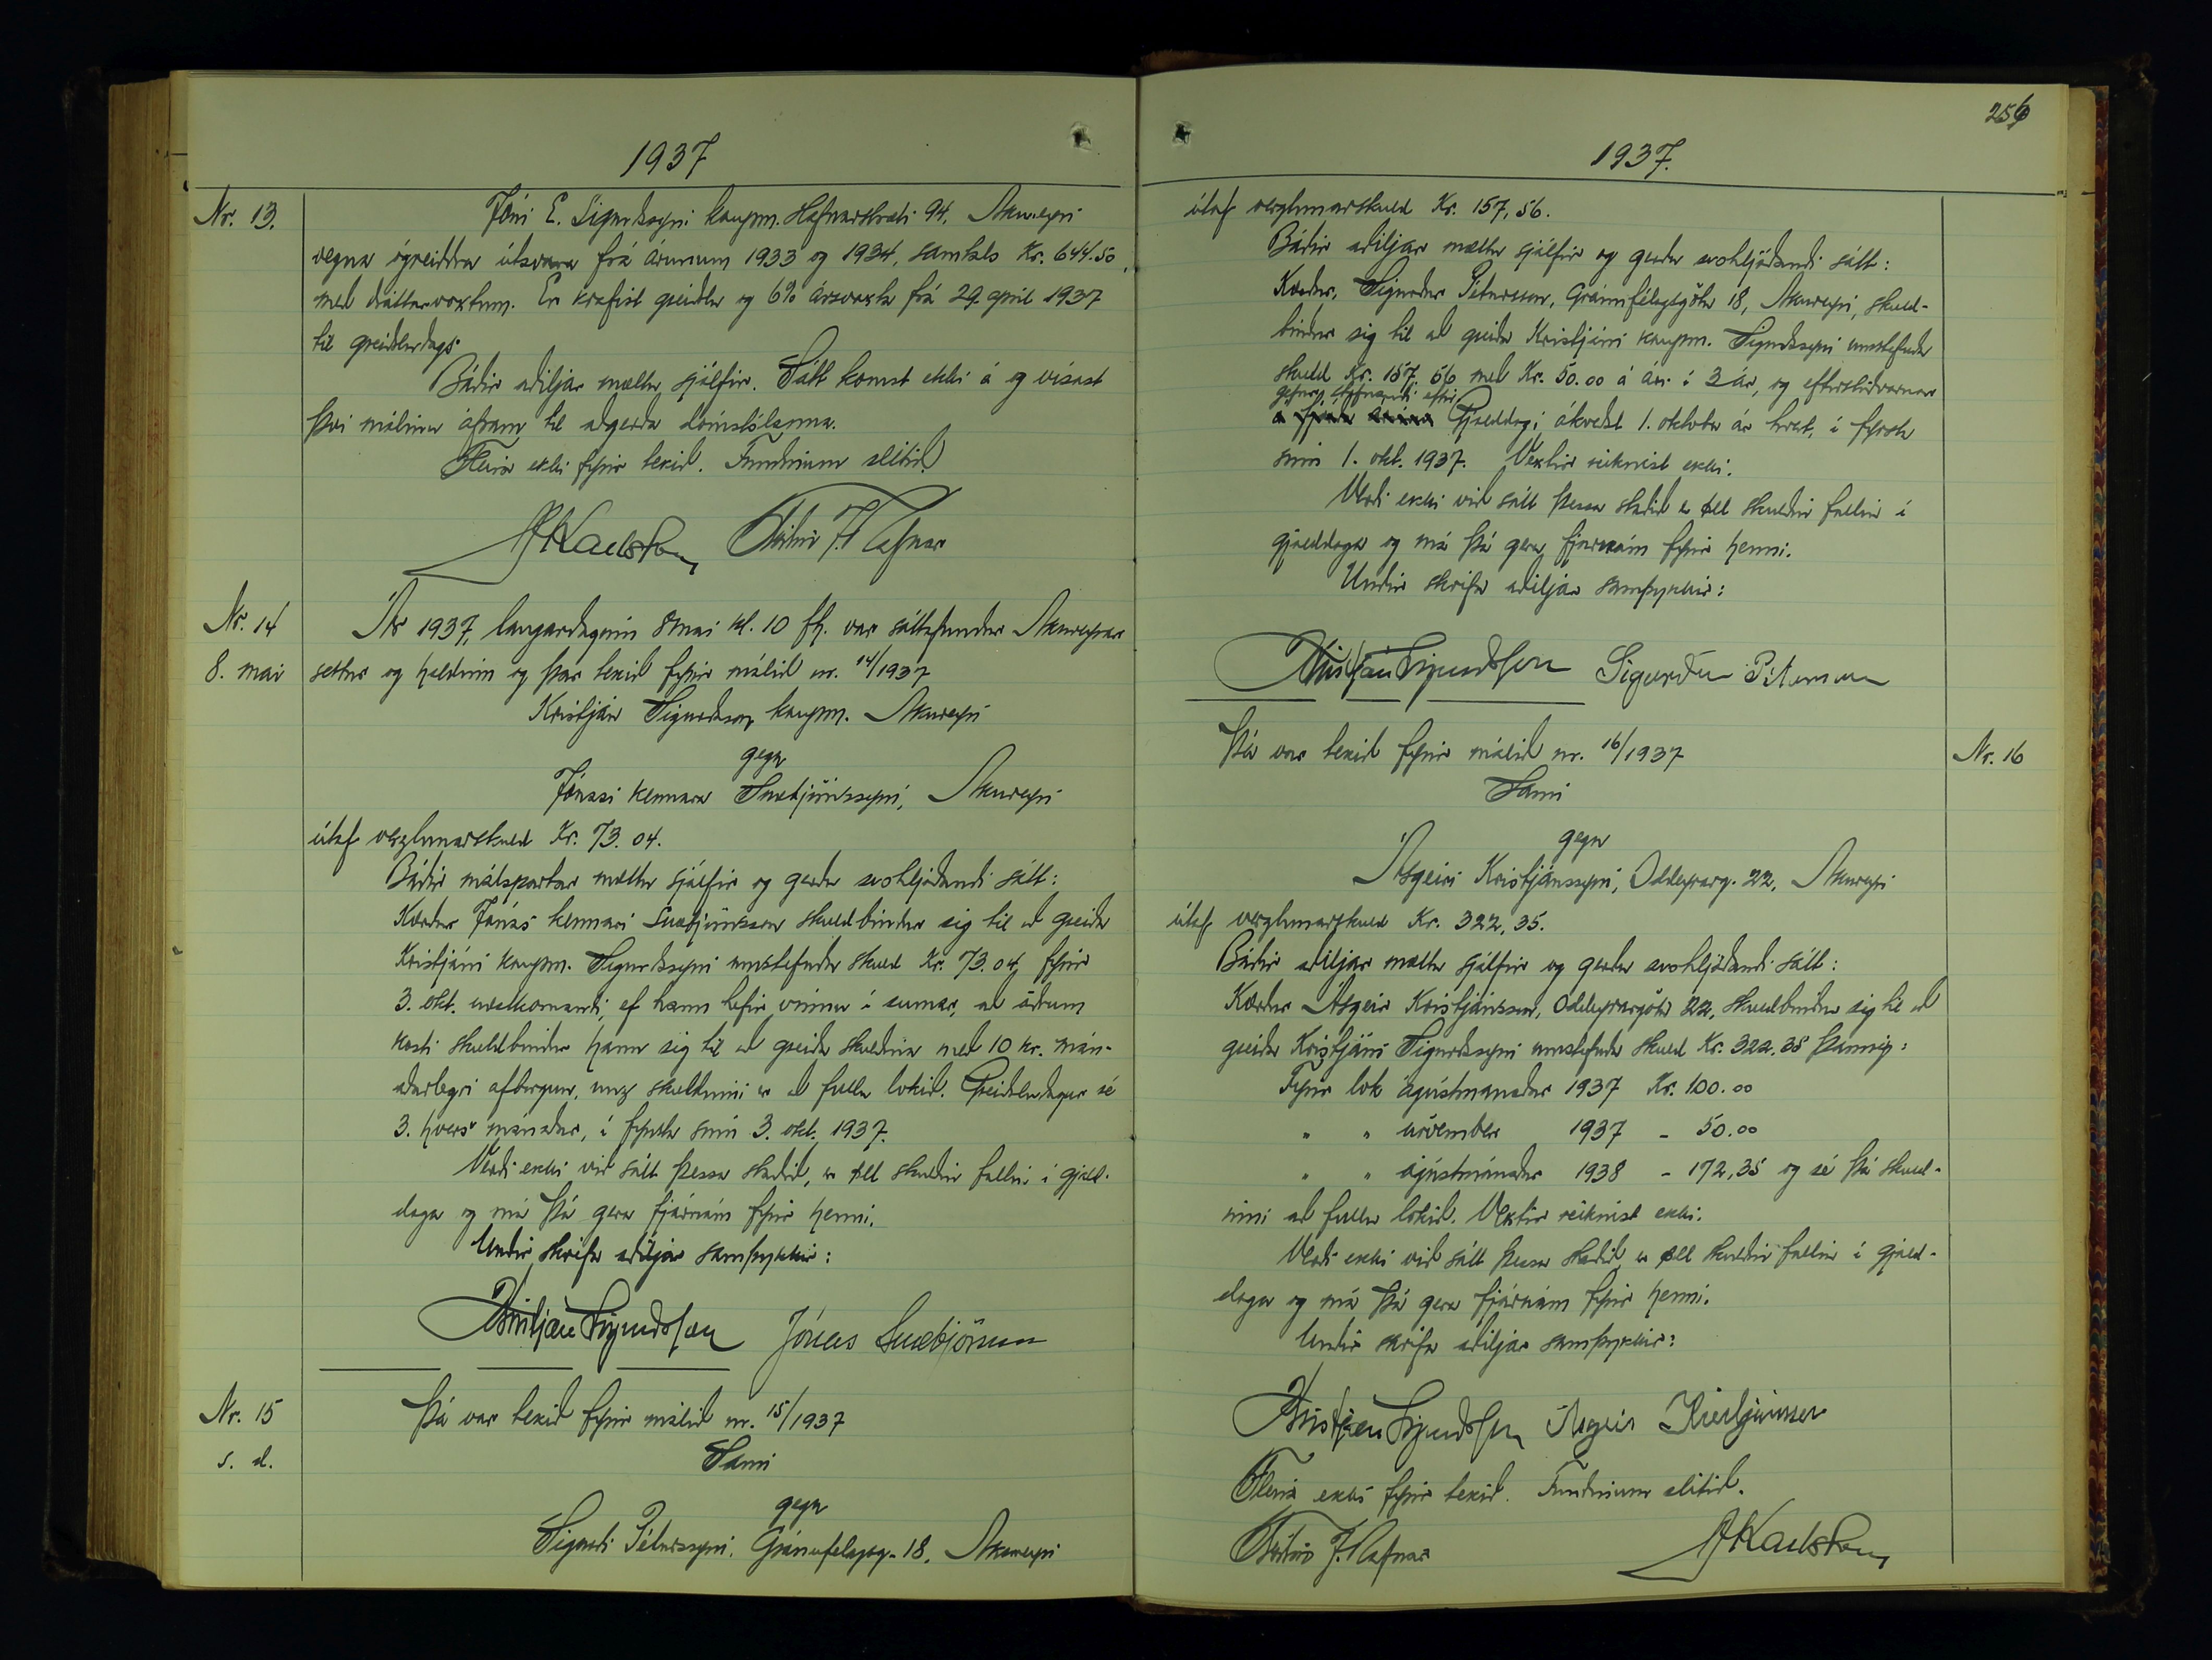 1937
Nr. 13.
Jóni E. Sigurðssyni kaupm. Hafnarstræti 94, Akureyri
vegna ógreiddra útsvara frá árunum 1933 og 1934, samtals Kr. 644.50,
með dráttarvöxtum. Er krafist greiðslu og 6% ársvaxta frá 29. apríl 1937
til greiðsludags.
Báðir aðiljar mættu sjálfir. Sátt komst ekki á og vísast
því málinu áfram til aðgerða dómstólanna.
Fleira ekki fyrir tekið. Fundinum slitið.
Friðrik J. Rafnar
Nr. 14
8. maí
Ár 1937, laugardaginn 8 maí kl. 10 fh. var sáttafundur Akureyrar
settur og haldinn og þar tekið fyrir málið nr. 14/1937
Kristján Sigurðsson kaupm. Akureyri
gegn
Jónasi kennara Snæbjörnssyni, Akureyri
útaf verzlunarskuld Kr. 73.04.
Báðir málspartar mættu sjálfir og gerðu svohljóðandi sátt:
Kærður Jónas kennari Snæbjörnsson skuldbindur sig til að greiða
Kristjáni kaupm. Sigurðssyni umstefnda skuld Kr. 73.04 fyrir
3. okt. næstkomandi, ef hann hefir vinnu í sumar, að öðrum
kosti skuldbindur hann sig til að greiða skuldina með 10 kr. mán-
aðarlegri afborgun, unz skuldinni er að fullu lokið. Greiðsludagur sé
3. hvers mánaðar, í fyrsta sinn 3. okt. 1937.
Verði ekki við sátt þessa staðið, er öll skuldin fallin í gjald-
daga og má þá gera fjárnám fyrir henni.
Undir skrifa aðiljar samþykkir:
Kristján Sigurðsson Jónas Snæbjörnsson
Nr. 15
s. d.
Þá var tekið fyrir málið nr. 15/1937
Sami
gegn
Sigurði Péturssyni, Gránufélagsg. 18, Akureyri
256
1937.
útaf verzlunarskuld Kr. 157,56.
Báðir aðiljar mættu sjálfir og gerðu svohljóðandi sátt:
Kærður, Sigurður Pétursson, Gránufélagsgötu 18, Akureyri, skuld-
bindur sig til að greiða Kristjáni kaupm. Sigurðssyni umstefnda
skuld Kr. 157.56 með Kr. 50.00 á ári í 3 ár, og eftirstöðvarnar
gefur stefnandi eftir
Gjalddagi ákveðst 1. október ár hvert, í fyrsta
sinn 1. okt. 1937. Vextir reiknist ekki.
Verði ekki við sátt þessa staðið er öll skuldin fallin í
gjalddaga og má þá gera fjárnám fyrir henni.
Undir skrifa aðiljar samþykkir:
Kristján Sigurðsson Sigurður Pétursson
Þá var tekið fyrir málið nr. 16/1937
Nr. 16
Sami
gegn
Ásgeiri Kristjánssyni, Oddeyrarg. 22, Akureyri
útaf verzlunarskuld Kr. 322,35.
Báðir aðiljar mættu sjálfir og gerðu svohljóðandi sátt:
Kærður Ásgeir Kristjánsson, Oddeyrargötu 22, skuldbindur sig til að
greiða Kristjáni Sigurðssyni umstefnda skuld Kr. 322.35 þannig:
Fyrir lok ágústmánaðar 1937 Kr. 100.00
" " nóvember 1937 - 50.00
" " ágústmánaðar 1938 - 172,35 og sé þá skuld-
inni að fullu lokið. Vextir reiknist ekki.
Verði ekki við sátt þessa staðið er öll skuldin fallin í gjald-
daga og má þá gera fjárnám fyrir henni.
Undir skrifa aðiljar samþykkir:
Kristján Sigurðsson Ásgeir Kristjánsson
Fleira ekki fyrir tekið. Fundinum slitið.
Friðrik J. Rafnar